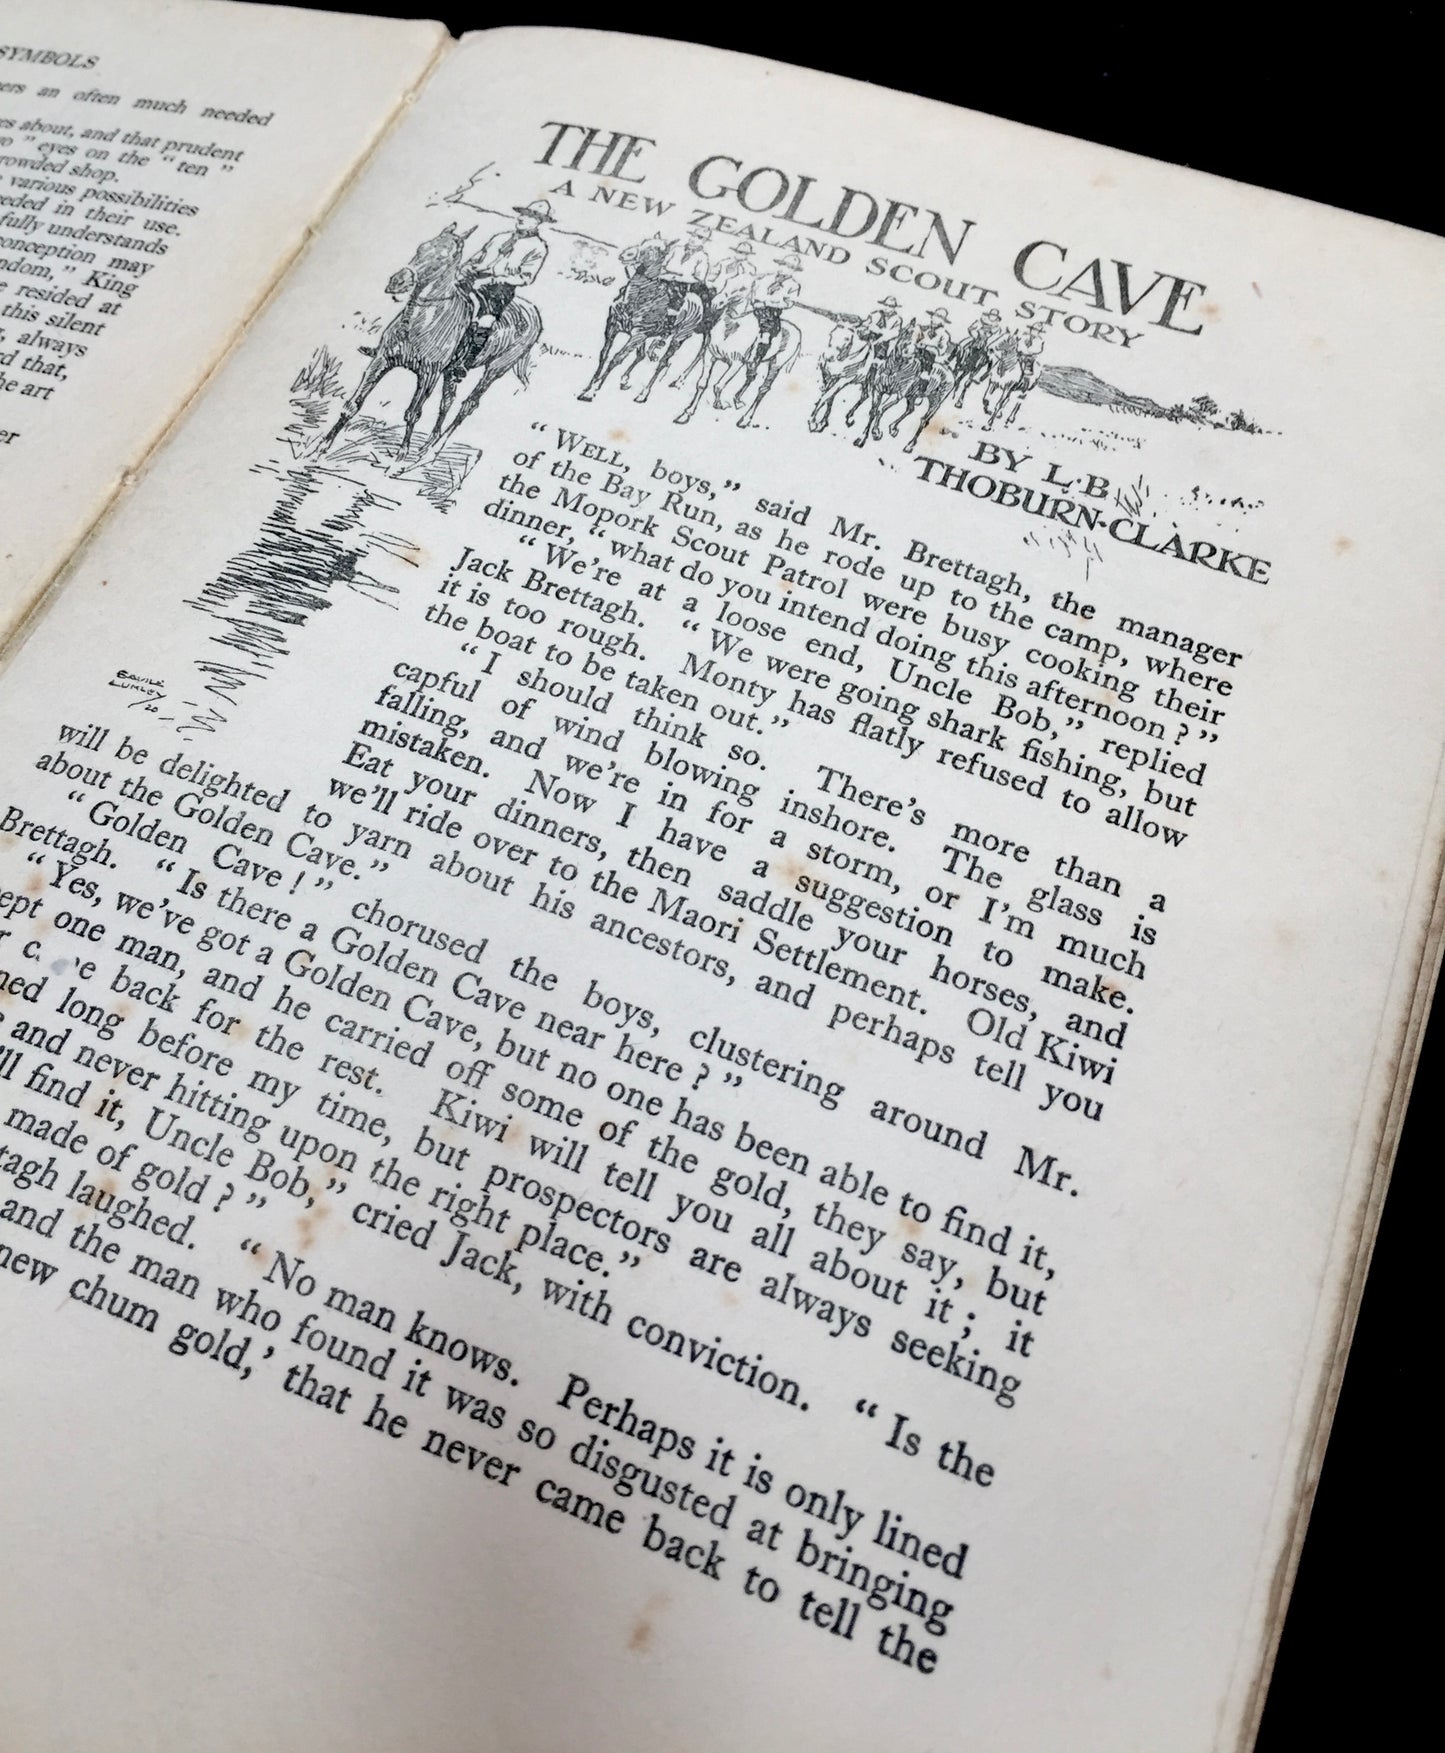 SYMBOLS
an often much needed
about, and that prudent
" eyes on the " ten "
crowded shop.
various possibilities
in their use.
fully understands
conception may
King
resided at
this silent
always
that,
the art
THE GOLDEN CAVE
A NEW ZEALAND SCOUT STORY
BY L·B·
THOBURN-CLARKE
SAVILE
LUMLEY
20
“ WELL, boys,” said Mr. Brettagh, the manager
of the Bay Run, as he rode up to the camp, where
the Mopork Scout Patrol were busy cooking their
dinner, “ what do you intend doing this afternoon ? ”
“ We’re at a loose end, Uncle Bob,” replied
Jack Brettagh. “ We were going shark fishing, but
it is too rough. Monty has flatly refused to allow
the boat to be taken out.”
“ I should think so. There’s more than a
capful of wind blowing inshore. The glass is
falling, and we’re in for a storm, or I’m much
mistaken. Now I have a suggestion to make.
Eat your dinners, then saddle your horses, and
we’ll ride over to the Maori Settlement. Old Kiwi
will be delighted to yarn about his ancestors, and perhaps tell you
about the Golden Cave.”
“ Golden Cave ! ” chorused the boys, clustering around Mr.
Brettagh. “ Is there a Golden Cave near here ? ”
“ Yes, we’ve got a Golden Cave, but no one has been able to find it,
one man, and he carried off some of the gold, they say, but
back for the rest. Kiwi will tell you all about it ; it
long before my time, but prospectors are always seeking
and never hitting upon the right place.”
find it, Uncle Bob,” cried Jack, with conviction. “ Is the
made of gold ? ”
laughed. “ No man knows. Perhaps it is only lined
and the man who found it was so disgusted at bringing
new chum gold,’ that he never came back to tell the